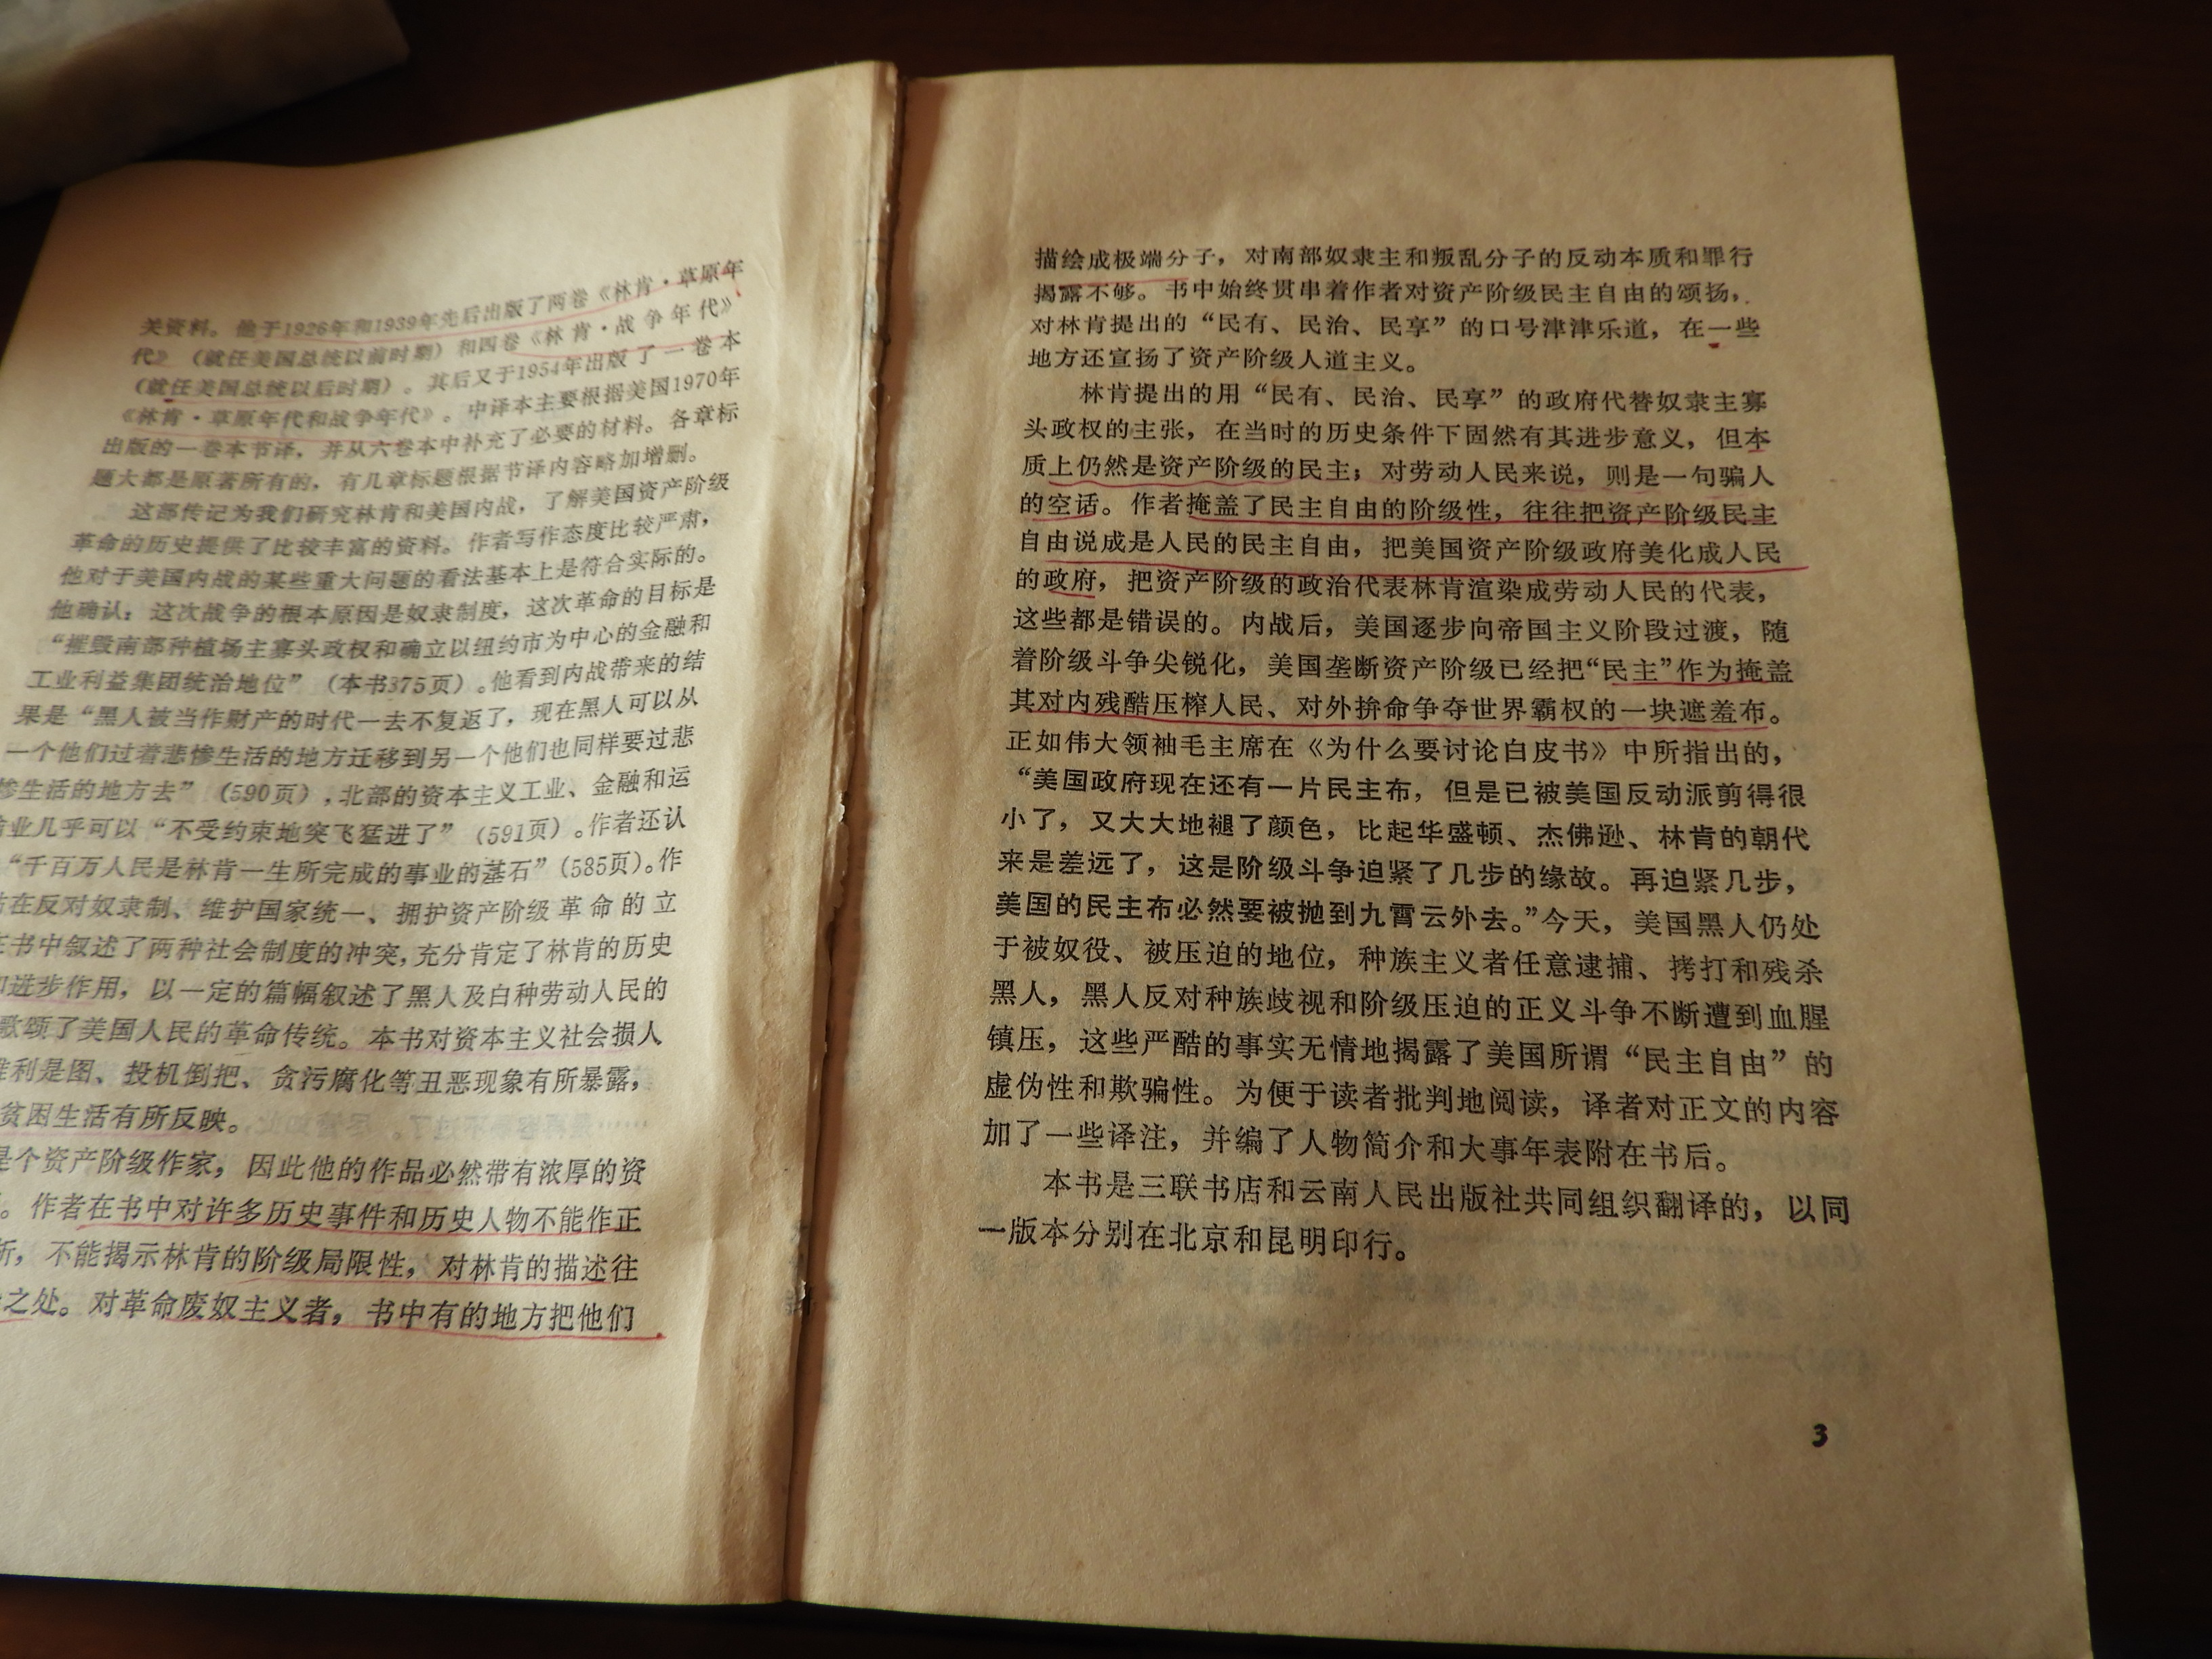 关资料。他于1926年和1939年先后出版了两卷《林肯·草原年
代》（就任美国总统以前时期）和四卷《林肯·战争年代》
（就任美国总统以后时期）。其后又于1954年出版了一卷本
《林肯·草原年代和战争年代》。中译本主要根据美国1970年
出版的一卷本节译，并从六卷本中补充了必要的材料。各章标
题大都是原著所有的，有几章标题根据节译内容略加增删。
这部传记为我们研究林肯和美国内战，了解美国资产阶级
革命的历史提供了比较丰富的资料。作者写作态度比较严肃，
他对于美国内战的某些重大问题的看法基本上是符合实际的。
他确认：这次战争的根本原因是奴隶制度，这次革命的目标是
“摧毁南部种植场主寡头政权和确立以纽约市为中心的金融和
工业利益集团统治地位”（本书375页）。他看到内战带来的结
果是“黑人被当作财产的时代一去不复返了，现在黑人可以从
一个他们过着悲惨生活的地方迁移到另一个他们也同样要过悲
惨生活的地方去”（590页），北部的资本主义工业、金融和运
业几乎可以“不受约束地突飞猛进了”（591页）。作者还认
“千百万人民是林肯一生所完成的事业的基石”（585页）。作
在反对奴隶制、维护国家统一、拥护资产阶级革命的立
在书中叙述了两种社会制度的冲突，充分肯定了林肯的历史
和进步作用，以一定的篇幅叙述了黑人及白种劳动人民的
歌颂了美国人民的革命传统。本书对资本主义社会损人
唯利是图、投机倒把、贪污腐化等丑恶现象有所暴露，
贫困生活有所反映。
是个资产阶级作家，因此他的作品必然带有浓厚的资
。作者在书中对许多历史事件和历史人物不能作正
析，不能揭示林肯的阶级局限性，对林肯的描述往
之处。对革命废奴主义者，书中有的地方把他们
描绘成极端分子，对南部奴隶主和叛乱分子的反动本质和罪行
揭露不够。书中始终贯串着作者对资产阶级民主自由的颂扬，
对林肯提出的“民有、民治、民享”的口号津津乐道，在一些
地方还宣扬了资产阶级人道主义。
林肯提出的用“民有、民治、民享”的政府代替奴隶主寡
头政权的主张，在当时的历史条件下固然有其进步意义，但本
质上仍然是资产阶级的民主；对劳动人民来说，则是一句骗人
的空话。作者掩盖了民主自由的阶级性，往往把资产阶级民主
自由说成是人民的民主自由，把美国资产阶级政府美化成人民
的政府，把资产阶级的政治代表林肯渲染成劳动人民的代表，
这些都是错误的。内战后，美国逐步向帝国主义阶段过渡，随
着阶级斗争尖锐化，美国垄断资产阶级已经把“民主”作为掩盖
其对内残酷压榨人民、对外拚命争夺世界霸权的一块遮羞布。
正如伟大领袖毛主席在《为什么要讨论白皮书》中所指出的，
“美国政府现在还有一片民主布，但是已被美国反动派剪得很
小了，又大大地褪了颜色，比起华盛顿、杰佛逊、林肯的朝代
来是差远了，这是阶级斗争迫紧了几步的缘故。再迫紧几步，
美国的民主布必然要被抛到九霄云外去。”今天，美国黑人仍处
于被奴役、被压迫的地位，种族主义者任意逮捕、拷打和残杀
黑人，黑人反对种族歧视和阶级压迫的正义斗争不断遭到血腥
镇压，这些严酷的事实无情地揭露了美国所谓“民主自由”的
虚伪性和欺骗性。为便于读者批判地阅读，译者对正文的内容
加了一些译注，并编了人物简介和大事年表附在书后。
本书是三联书店和云南人民出版社共同组织翻译的，以同
一版本分别在北京和昆明印行。
3